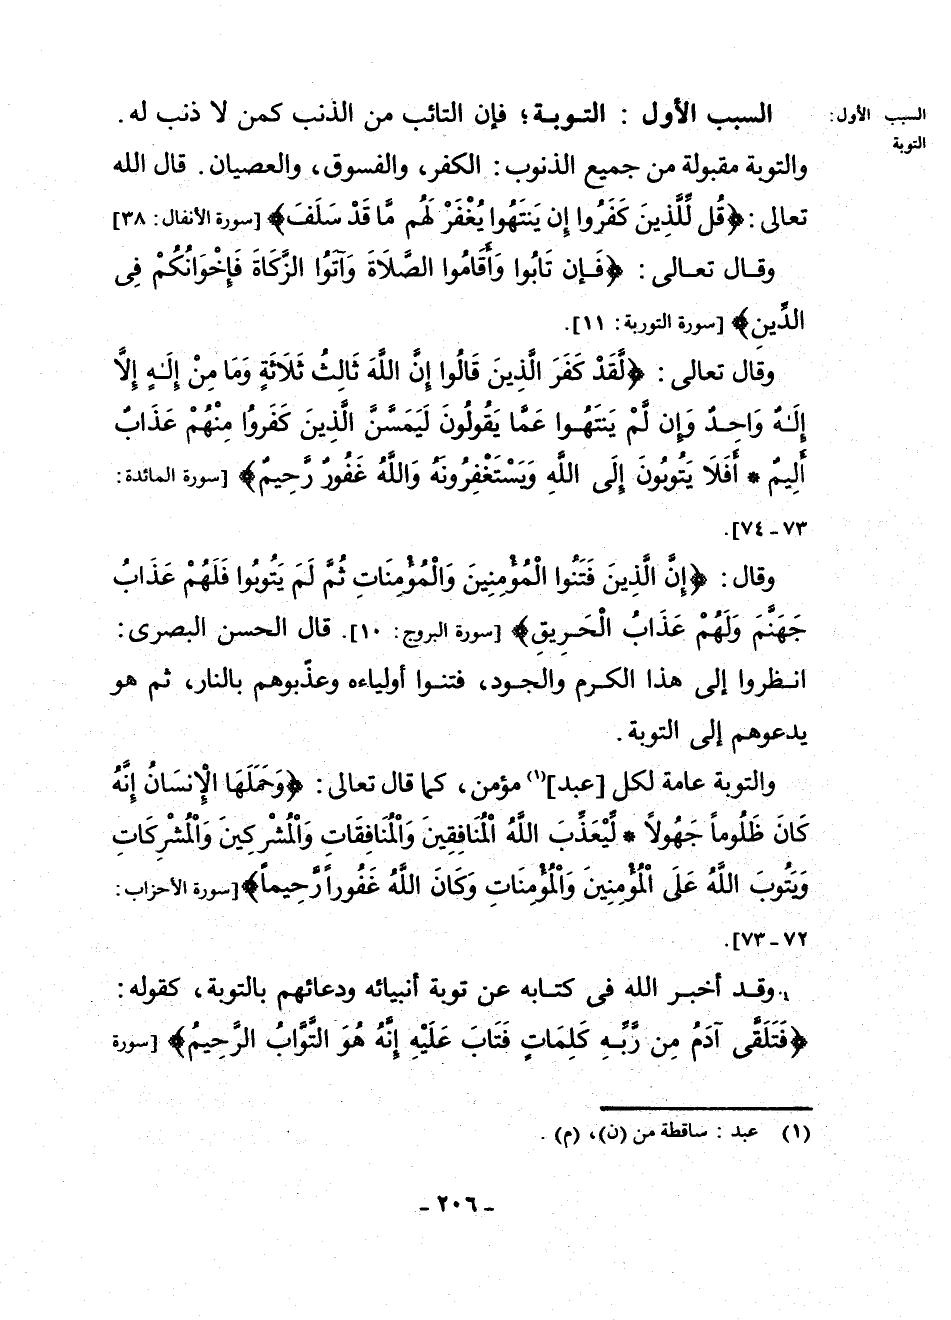 السبب الأول:
التوبة
السبب الأول : التوبة؛ فإن التائب من الذنب كمن لا ذنب له .
والتوبة مقبولة من جميع الذنوب : الكفر، والفسوق، والعصيان. قال الله
تعالى: ﴿قُل لِّلَّذِينَ كَفَرُوا إِن يَنتَهُوا يُغْفَرْ لَهُم مَّا قَدْ سَلَفَ﴾ [سورة الأنفال: ٣٨]
وقال تعالى : ﴿فَإِن تَابُوا وَأَقَامُوا الصَّلَاةَ وَآتَوُا الزَّكَاةَ فَإِخْوَانُكُمْ فِى
الدِّينِ﴾ [سورة التوربة: ١١].
وقال تعالى : ﴿لَّقَدْ كَفَرَ الَّذِينَ قَالُوا إِنَّ اللَّهَ ثَالِثُ ثَلَاثَةٍ وَمَا مِنْ إِلَـٰهٍ إِلَّا
إِلَـٰهٌ وَاحِدٌ وَإِن لَّمْ يَنتَهُوا عَمَّا يَقُولُونَ لَيَمَسَّنَّ الَّذِينَ كَفَرُوا مِنْهُمْ عَذَابٌ
أَلِيمٌ * أَفَلَا يَتُوبُونَ إِلَى اللَّهِ وَيَسْتَغْفِرُونَهُ وَاللَّهُ غَفُورٌ رَّحِيمٌ﴾ [سورة المائدة:
٧٣ - ٧٤].
وقال : ﴿إِنَّ الَّذِينَ فَتَنُوا الْمُؤْمِنِينَ وَالْمُؤْمِنَاتِ ثُمَّ لَمْ يَتُوبُوا فَلَهُمْ عَذَابُ
جَهَنَّمَ وَلَهُمْ عَذَابُ الْحَرِيقِ﴾ [سورة البروج: ١٠]. قال الحسن البصرى:
انظروا إلى هذا الكرم والجود، فتنوا أولياءه وعذّبوهم بالنار، ثم هو
يدعوهم إلى التوبة .
والتوبة عامة لكل [عبد](١) مؤمن، كما قال تعالى : ﴿وَحَمَلَهَا الْإِنسَانُ إِنَّهُ
كَانَ ظَلُوماً جَهُولاً * لِّيُعَذِّبَ اللَّهُ الْمُنَافِقِينَ وَالْمُنَافِقَاتِ وَالْمُشْرِكِينَ وَالْمُشْرِكَاتِ
وَيَتُوبَ اللَّهُ عَلَى الْمُؤْمِنِينَ وَالْمُؤْمِنَاتِ وَكَانَ اللَّهُ غَفُوراً رَّحِيماً﴾ [سورة الأحزاب:
٧٢ - ٧٣].
وقد أخبر الله فى كتابه عن توبة أنبيائه ودعائهم بالتوبة، كقوله :
﴿فَتَلَقَّى آدَمُ مِن رَّبِّهِ كَلِمَاتٍ فَتَابَ عَلَيْهِ إِنَّهُ هُوَ التَّوَّابُ الرَّحِيمُ﴾ [سورة
(١) عبد : ساقطة من (ن)، (م) .
- ٢٠٦ -